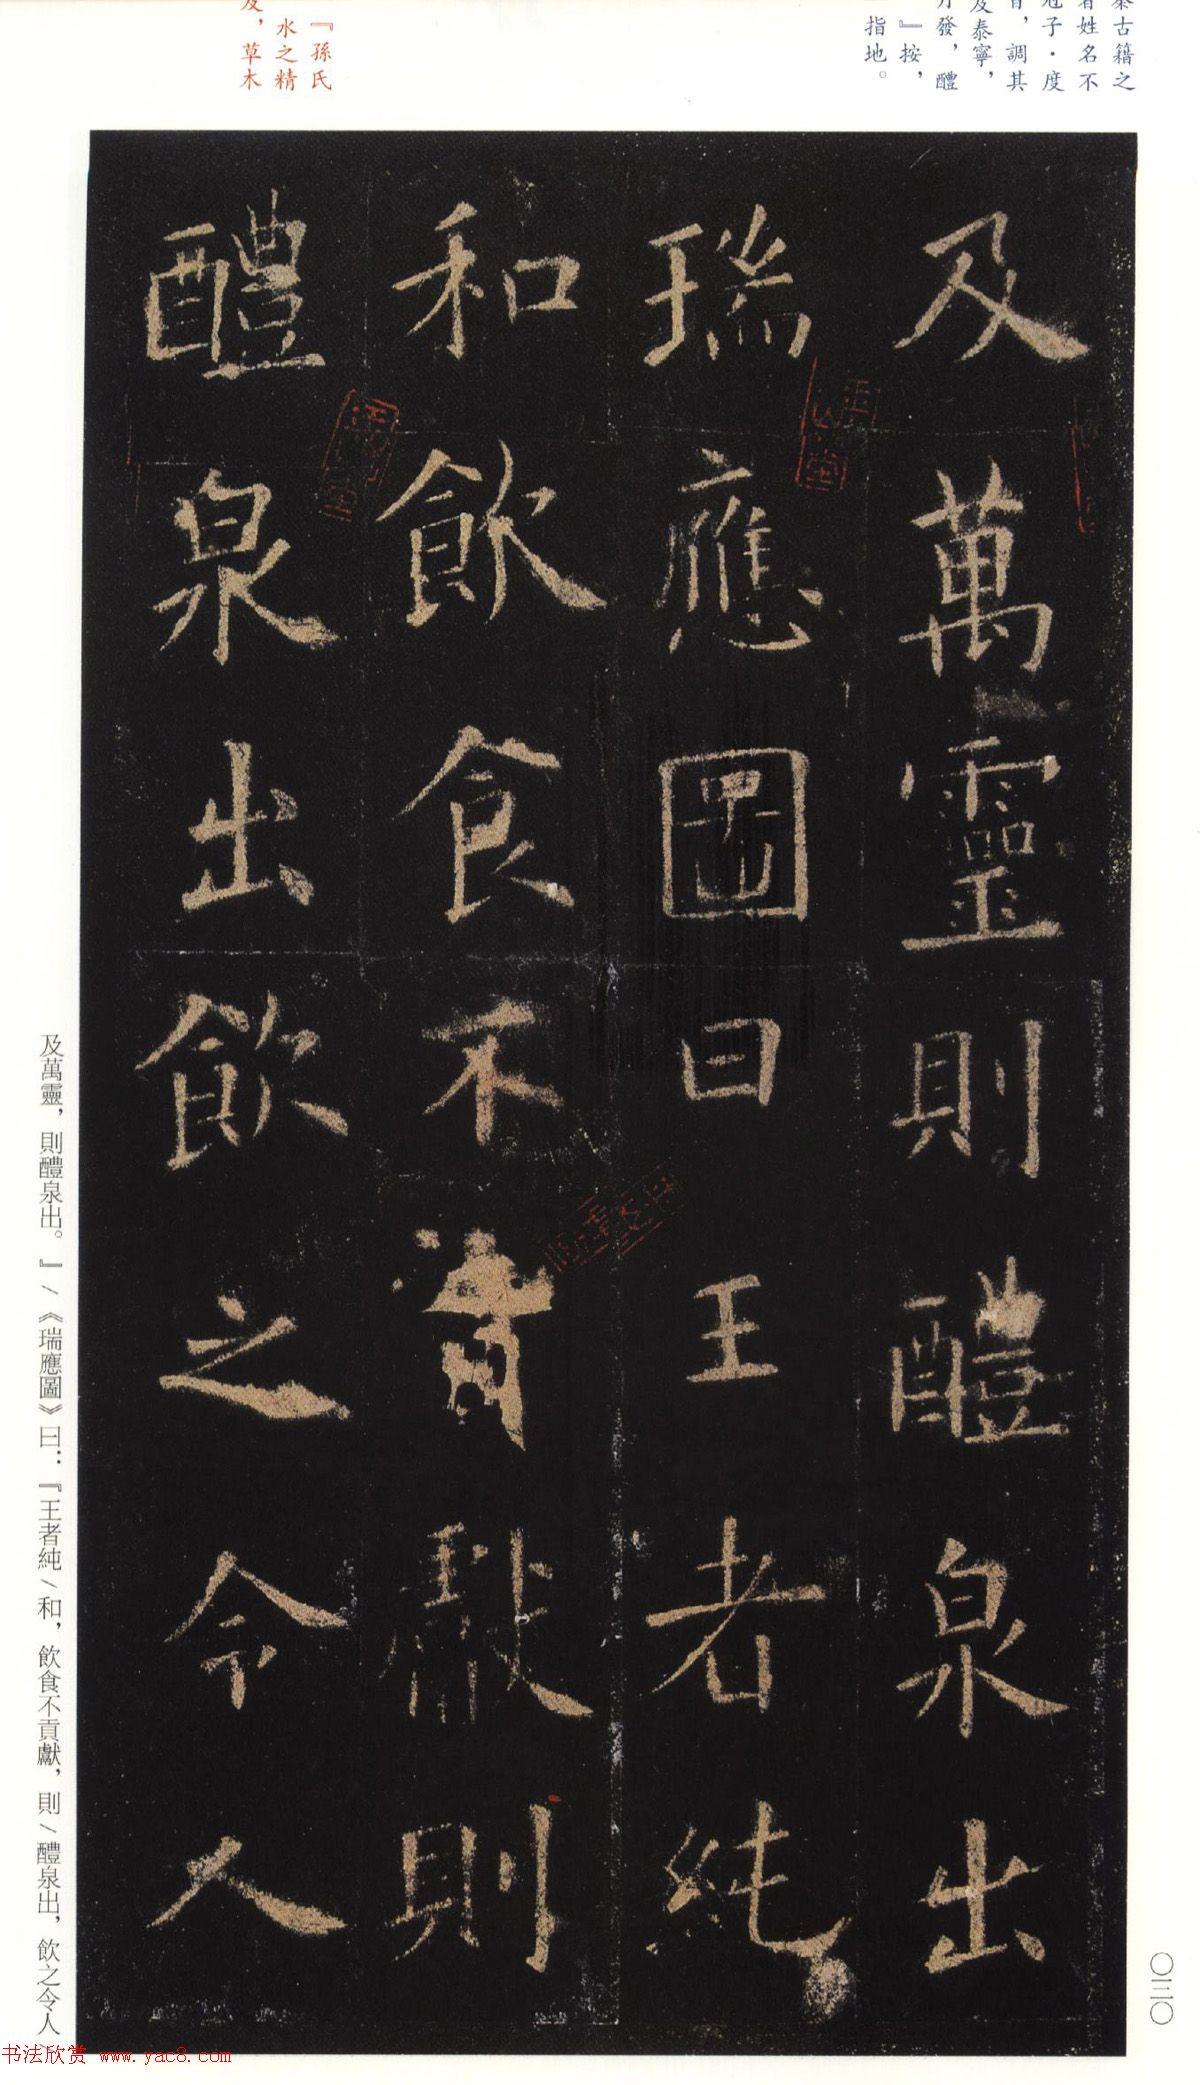 秦古籍之
者姓名不
冠子·度
旨，調其
及泰寧，
乃發，醴
』按，
指地。
『孫氏
水之精
及，草木
及萬靈則醴泉出
瑞應圖曰王者純
和飲食不貢獻則
醴泉出飲之令人
及萬靈，則醴泉出。』/《瑞應圖》曰：『王者純/和，飲食不貢獻，則/醴泉出，飲之令人
〇三〇
书法欣赏 www.yac8.com